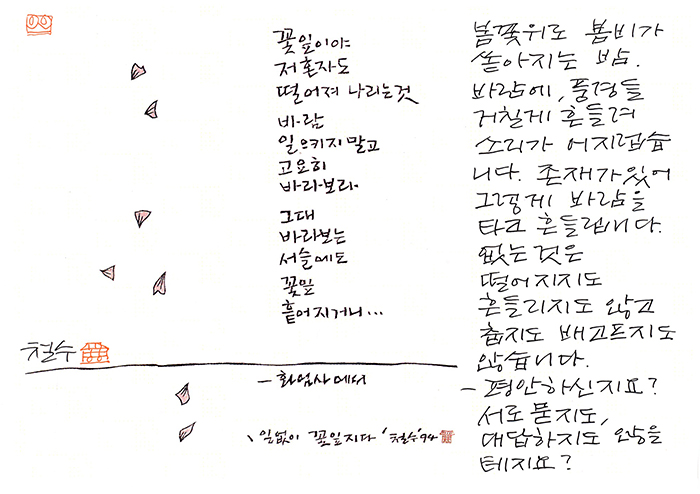 꽃잎이야
저 혼자도
떨어져 나리는것
바람
일으키지말고
고요히
바라보라
그대
바라보는
서슬에도
꽃잎
흩어지거니...
철수
- 화엄사에서
일없이 꽃잎지다 '철수' 94
봄꽃위로 봄비가
쏟아지는 밤.
바람에, 풍경들
거칠게 흔들려
소리가 어지럽습
니다. 존재가 있어
그렇게 바람을
타고 흔들립니다.
없는 것은
떨어지지도
흔들리지도 않고
춥지도 배고프지도
않습니다.
- 평안하신지요?
서로 묻지도,
대답하지도 않을
테지요?